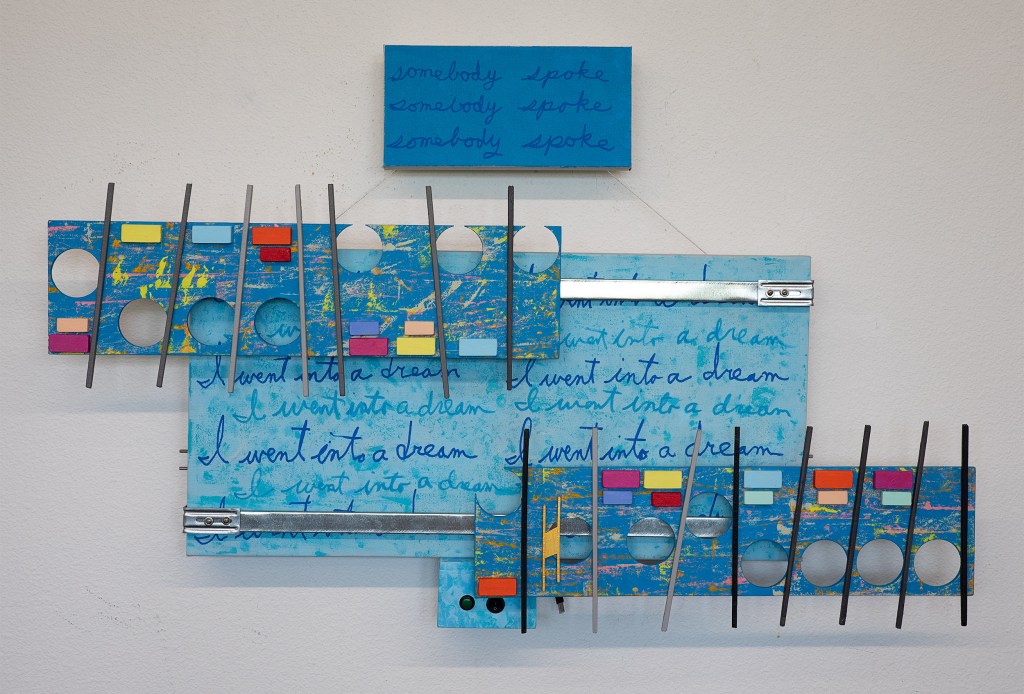 somebody spoke
somebody spoke
somebody spoke
went into a dream
I went into a dream I went into a dream
I went into a dream I went into a dream
I went into a dream I went into a dream
I went into a dream